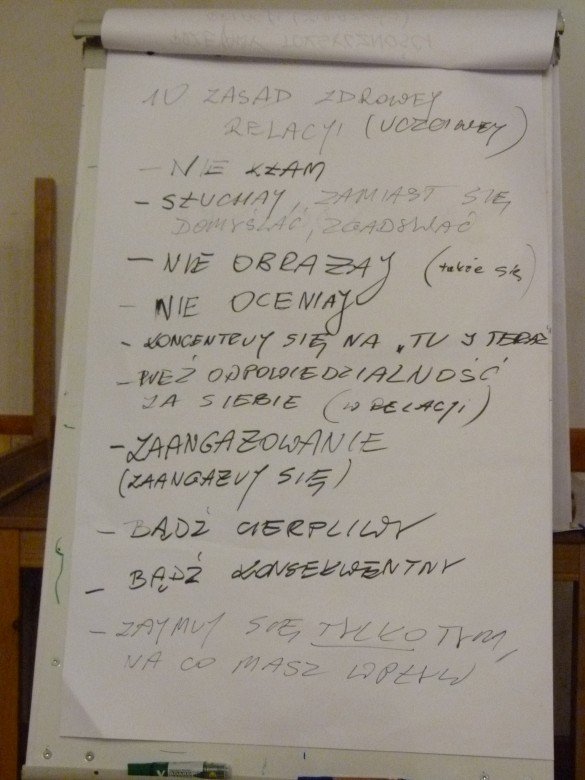 10 ZASAD ZDROWEJ
RELACJI (UCZCIWEJ)
- NIE KŁAM
- SŁUCHAJ, ZAMIAST SIĘ
DOMYŚLAĆ, ZGADYWAĆ
- NIE OBRAŻAJ (także się)
- NIE OCENIAJ
- KONCENTRUJ SIĘ NA „TU I TERAZ"
- WEŹ ODPOWIEDZIALNOŚĆ
ZA SIEBIE (W RELACJI)
- ZAANGAZOWANIE
(ZAANGAZUJ SIĘ)
- BĄDŹ CIERPLIWY
- BĄDŹ KONSEKWĘNTNY
- ZAJMUJ SIĘ TYLKO TYM,
NA CO MASZ WPŁYW